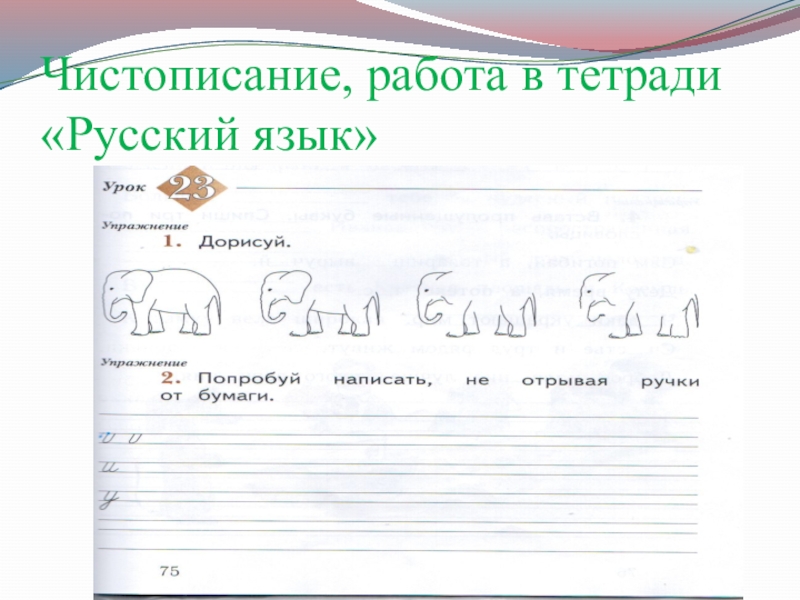 Чистописание, работа в тетради
«Русский язык»
Урок 23
Упражнение
1. Дорисуй.
Упражнение
2. Попробуй написать, не отрывая ручки
от бумаги.
и
у
75